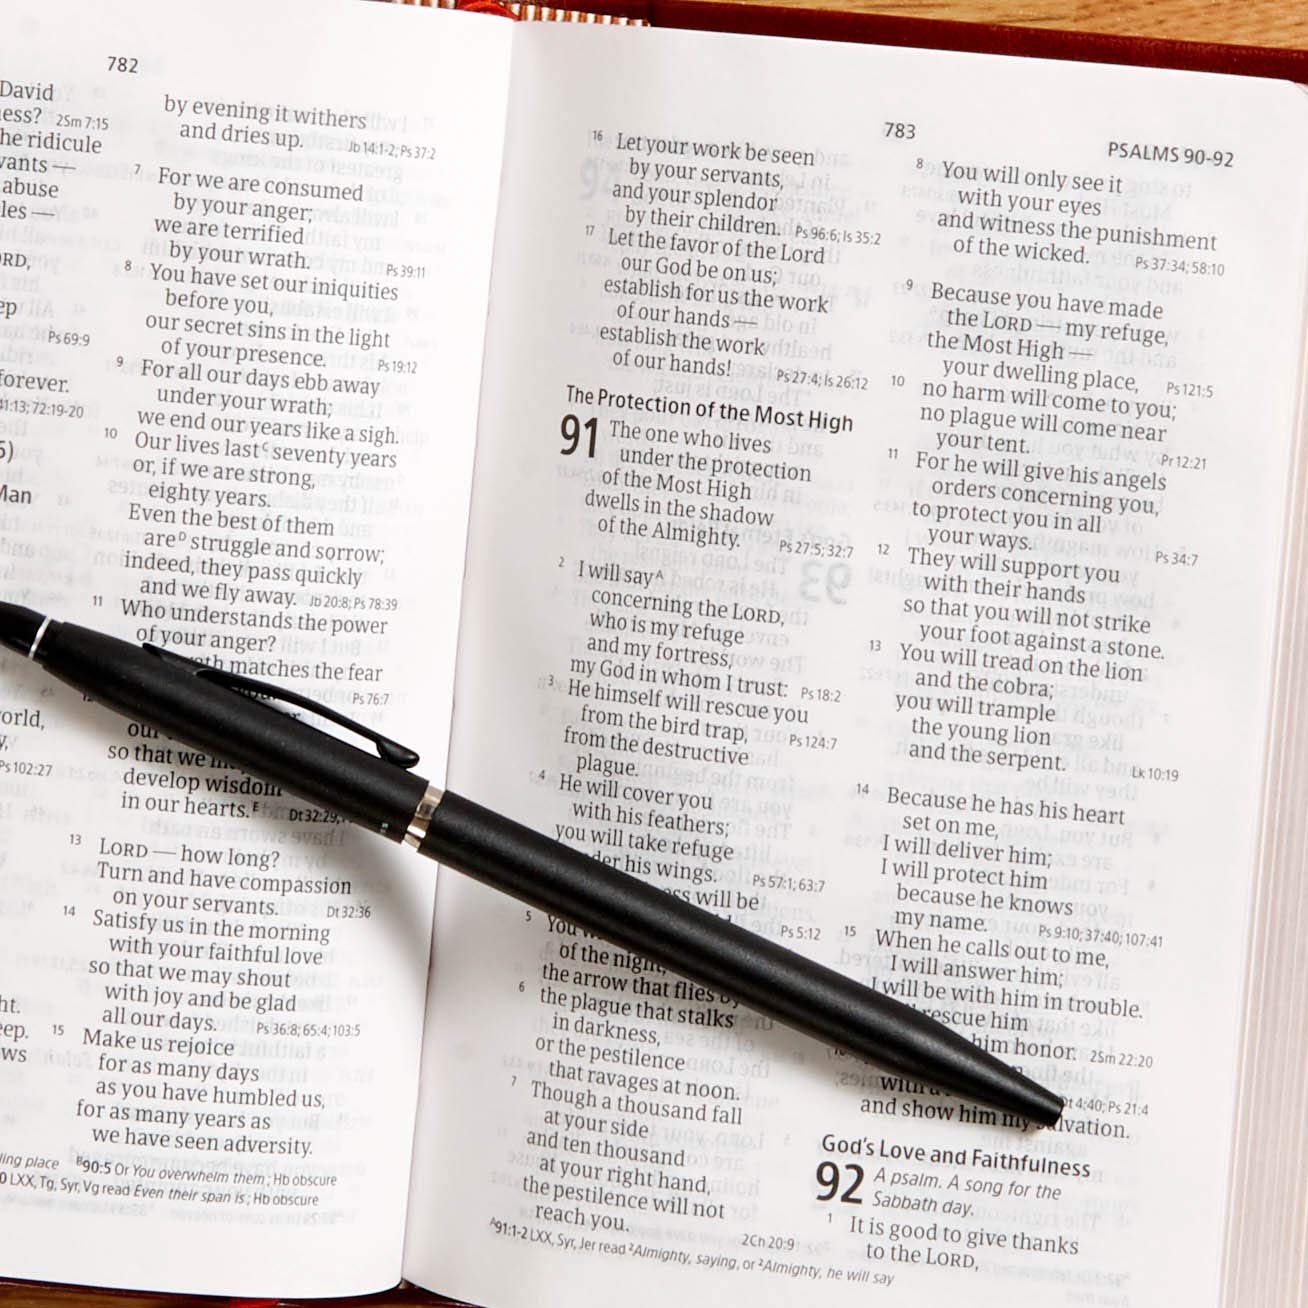 782
David
ess? 2Sm 7:15
he ridicule
vants —
abuse
les —
ORD,
ep
Ps 69:9
forever.
41:13; 72:19-20
5)
Man
orld,
y,
Ps 102:27
ht.
eep.
ws
by evening it withers
and dries up. Jb 14:1-2; Ps 37:2
7 For we are consumed
by your anger;
we are terrified
by your wrath. Ps 39:11
8 You have set our iniquities
before you,
our secret sins in the light
of your presence. Ps 19:12
9 For all our days ebb away
under your wrath;
we end our years like a sigh.
10 Our lives last C seventy years
or, if we are strong,
eighty years.
Even the best of them
are D struggle and sorrow;
indeed, they pass quickly
and we fly away. Jb 20:8; Ps 78:39
11 Who understands the power
of your anger?
matches the fear
Ps 76:7
12
so that we may
develop wisdom
in our hearts. E Dt 32:29;
13 LORD — how long?
Turn and have compassion
on your servants. Dt 32:36
14 Satisfy us in the morning
with your faithful love
so that we may shout
with joy and be glad
all our days. Ps 36:8; 65:4; 103:5
15 Make us rejoice
for as many days
as you have humbled us,
for as many years as
we have seen adversity.
ling place B 90:5 Or You overwhelm them; Hb obscure
0 LXX, Tg, Syr, Vg read Even their span is; Hb obscure
783
PSALMS 90-92
16 Let your work be seen
by your servants,
and your splendor
by their children. Ps 96:6; Is 35:2
17 Let the favor of the Lord
our God be on us;
establish for us the work
of our hands —
establish the work
of our hands! Ps 27:4; Is 26:12
The Protection of the Most High
91 The one who lives
under the protection
of the Most High
dwells in the shadow
of the Almighty. Ps 27:5; 32:7
2 I will say A
concerning the LORD,
who is my refuge
and my fortress,
my God in whom I trust: Ps 18:2
3 He himself will rescue you
from the bird trap, Ps 124:7
from the destructive
plague.
4 He will cover you
with his feathers;
you will take refuge
under his wings. Ps 57:1; 63:7
will be
Ps 5:12
5 You
of the night,
the arrow that flies by
6 the plague that stalks
in darkness,
or the pestilence
that ravages at noon.
7 Though a thousand fall
at your side
and ten thousand
at your right hand,
the pestilence will not
reach you. 2Ch 20:9
A 91:1-2 LXX, Syr, Jer read 2 Almighty, saying, or 2 Almighty, he will say
8 You will only see it
with your eyes
and witness the punishment
of the wicked. Ps 37:34; 58:10
9 Because you have made
the LORD — my refuge,
the Most High —
your dwelling place, Ps 121:5
10 no harm will come to you;
no plague will come near
your tent. Pr 12:21
11 For he will give his angels
orders concerning you,
to protect you in all
your ways. Ps 34:7
12 They will support you
with their hands
so that you will not strike
your foot against a stone.
13 You will tread on the lion
and the cobra;
you will trample
the young lion
and the serpent. Lk 10:19
14 Because he has his heart
set on me,
I will deliver him;
I will protect him
because he knows
my name. Ps 9:10; 37:40; 107:41
15 When he calls out to me,
I will answer him;
I will be with him in trouble.
rescue him
him honor. 2Sm 22:20
with a Dt 4:40; Ps 21:4
and show him my salvation.
God's Love and Faithfulness
92 A psalm. A song for the
Sabbath day.
1 It is good to give thanks
to the LORD,